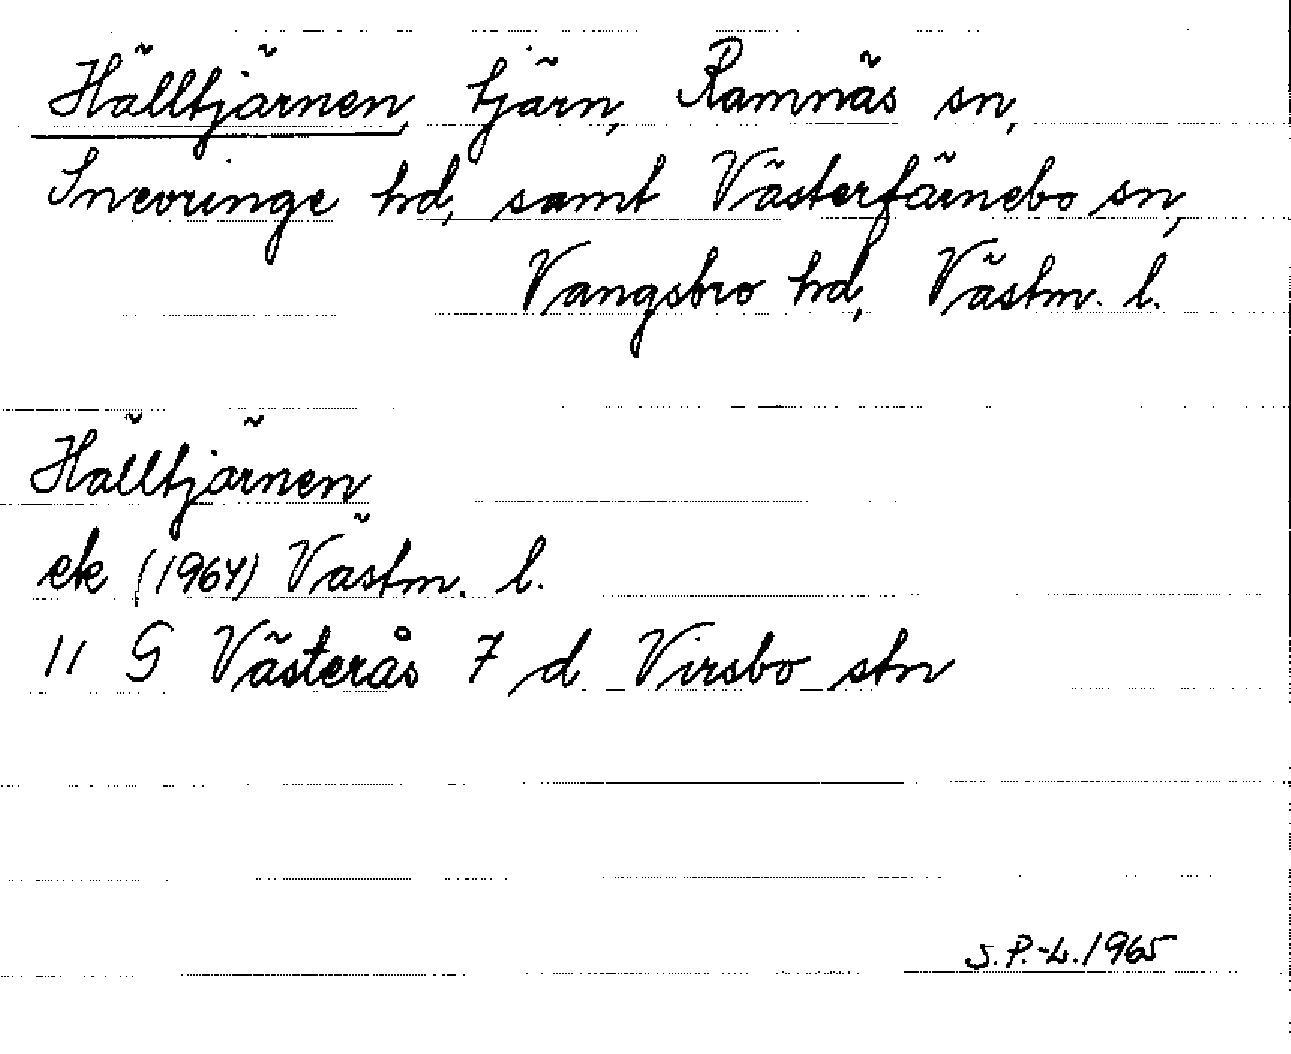 Hälltjärnen, tjärn, Ramnäs sn,
Snevringe hd, samt Västerfärnebo sn,
Vangsbro hd, Västm. l.
Hälltjärnen
ek (1964) Västm. l.
11 G Västerås 7 d Virsbo stn
S. P.-L. 1965